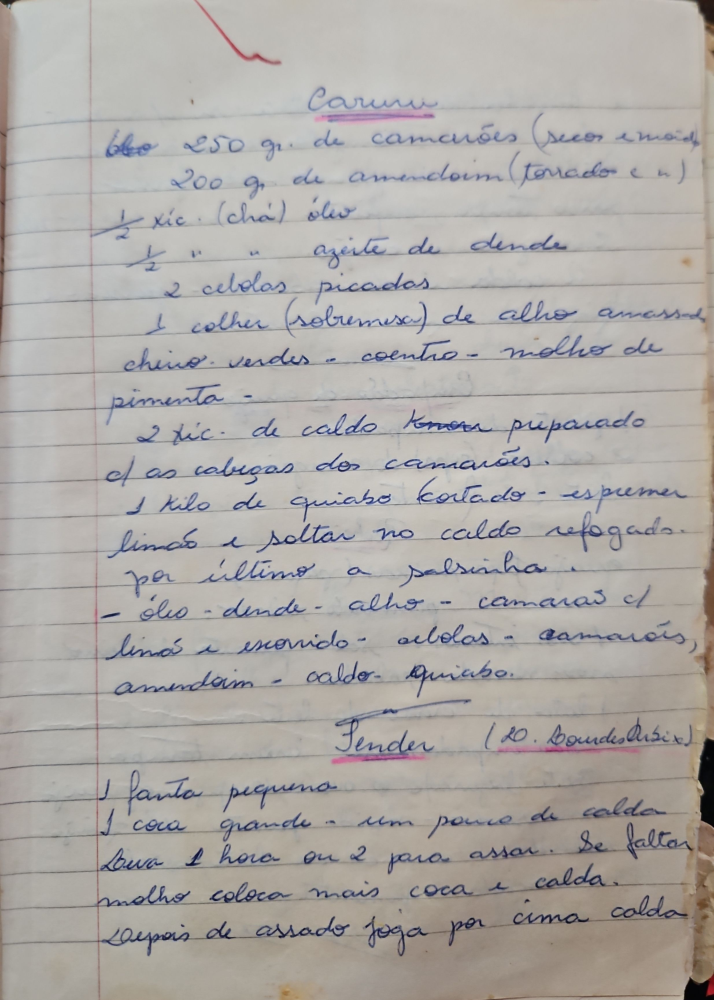 Caruru
250 gr. de camarões (secos e moid
200 g. de amendoim (torrado e ")
1/2 xic. (chá) óleo
1/2 " " azeite de dende
2 cebolas picadas
1 colher (sobremesa) de alho amassad
cheiro-verdes - coentro - molho de
pimenta -
2 xic. de caldo Knorr preparado
c/ as cabeças dos camarões.
1 Kilo de quiabo cortado - espremer
limão e soltar no caldo refogado.
por último a salsinha.
- óleo - dende - alho - camarão c/
limão e escorrido - cebolas - camarões,
amendoim - caldo - quiabo.
Tender (D. Lourdes
1 fanta pequena
1 coca grande - um pouco de calda
Leva 1 hora ou 2 para assar. Se faltar
molho coloca mais coca e calda.
Depois de assado joga por cima calda